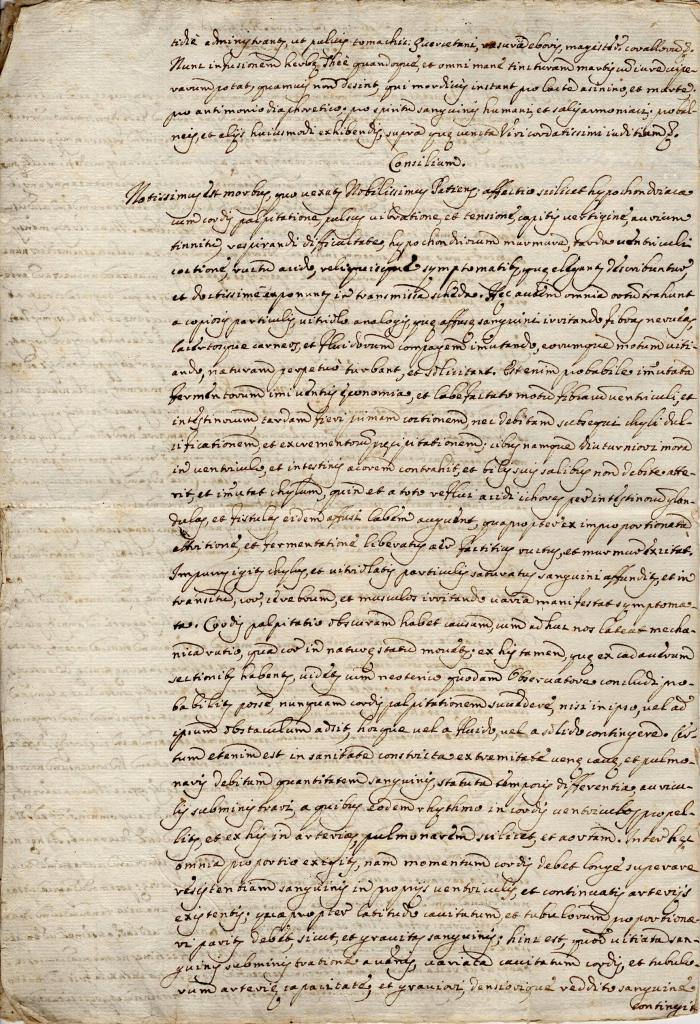 tidiè administrant, ut pulvis stomachic: Quercetani, rasura eboris, magister: corallorum
Nunc infusionem herbæ Theè quandoque, et omni manè tincturam martis cum iure vipe-
rarum potat, quamvis non desint, qui mordicus instant pro lacte asinino, et marte;
pro antimonio diaphoretico; pro spiritu sanguinis humani, et salis armoniaci; pro bal-
neis, et alijs huiusmodi exhibendis, supra quæ cuncta Viri cordatissimi iuditium
Consilium.
Notissimus est morbus, quo vexatur Nobilissimus Patiens, affectio scilicet hypochondriaca
cum cordis palpitatione, pulsus vibratione, et tensione, capitis vertigine, aurium
tinnitu, respirandi difficultate, hypochondriorum murmure, tarda ventriculi
coctione, ructu acido, reliquisque symptomatis, quæ eleganter describuntur
et doctissimè exponuntur in transmissa scheda. Hæc autem omnia ortum trahunt
a copiosis particulis vitriolo analogis, quæ affusæ sanguini irritando fibras nerveas
lacertosque carneos, et fluidorum compagem imutando, eorumque motum viti-
ando, naturam perpetuò turbant, et solicitant. Est enim probabile imutata
fermentorum imi ventris economia, et labefactato motu fibrarum ventriculi, et
intestinorum tardam fieri primam coctionem, nec debitam subsequi chyli dul-
cificationem, et excrementorum præcipitationem; cibus namque diuturniori mora
in ventriculo, et intestinis acorem contrahit, et bilis suis salibus non debite atte-
rit, et imutat chylum, quin et a toto reflui acidi ichores per intestinorum glan-
dulas, et fistulas eidem affusi labem augent, quapropter ex improportionata
attritione, et fermentatione liberatus aer factitius ructus, et murmur excitat.
Impurus igitur chylus, et vitriolatis particulis saturatus sanguini affunditur, et in
transitu, cor, cerebrum, et musculos irritando varia manifestat symptoma-
ta. Cordis palpitatio obscuram habet causam, cum adhuc nos lateat mecha-
nica ratio, qua cor in naturæ statu movetur; ex his tamen, quæ ex cadaverum
sectionibus habentur, videtur cum neoterico quodam Observatore concludi pro-
babiliter posse, nunquam cordis palpitationem suaderi, nisi in ipso, vel ad
ipsum obstaculum adsit, hocque vel a fluido, vel a solido contingere. Cer-
tum etenim est in sanitate constricta extremitate venæ cavæ, et pulmo-
naris debitam quantitatem sanguinis, statuta temporis differentia auricu-
lis subministrari, a quibus eodem rhythmo in cordis ventriculos propel-
litur, et ex his in arterias, pulmonarem scilicet, et aortam. Inter hæc
omnia proportio exigitur, nam momentum cordis debet longè superare
resistentiam sanguinis in proprijs ventriculis, et continuatis arterijs
existentis; quapropter latitudo cavitatum, et tubulorum proportiona-
ri pariter debet sicut, et gravitas sanguinis; hinc est, quod vitiata san-
guinis subministratione a venis, variata cavitatum cordis, et tubulo-
rum arteriæ capacitate, et graviori, densiorique reddito sanguine
contingit